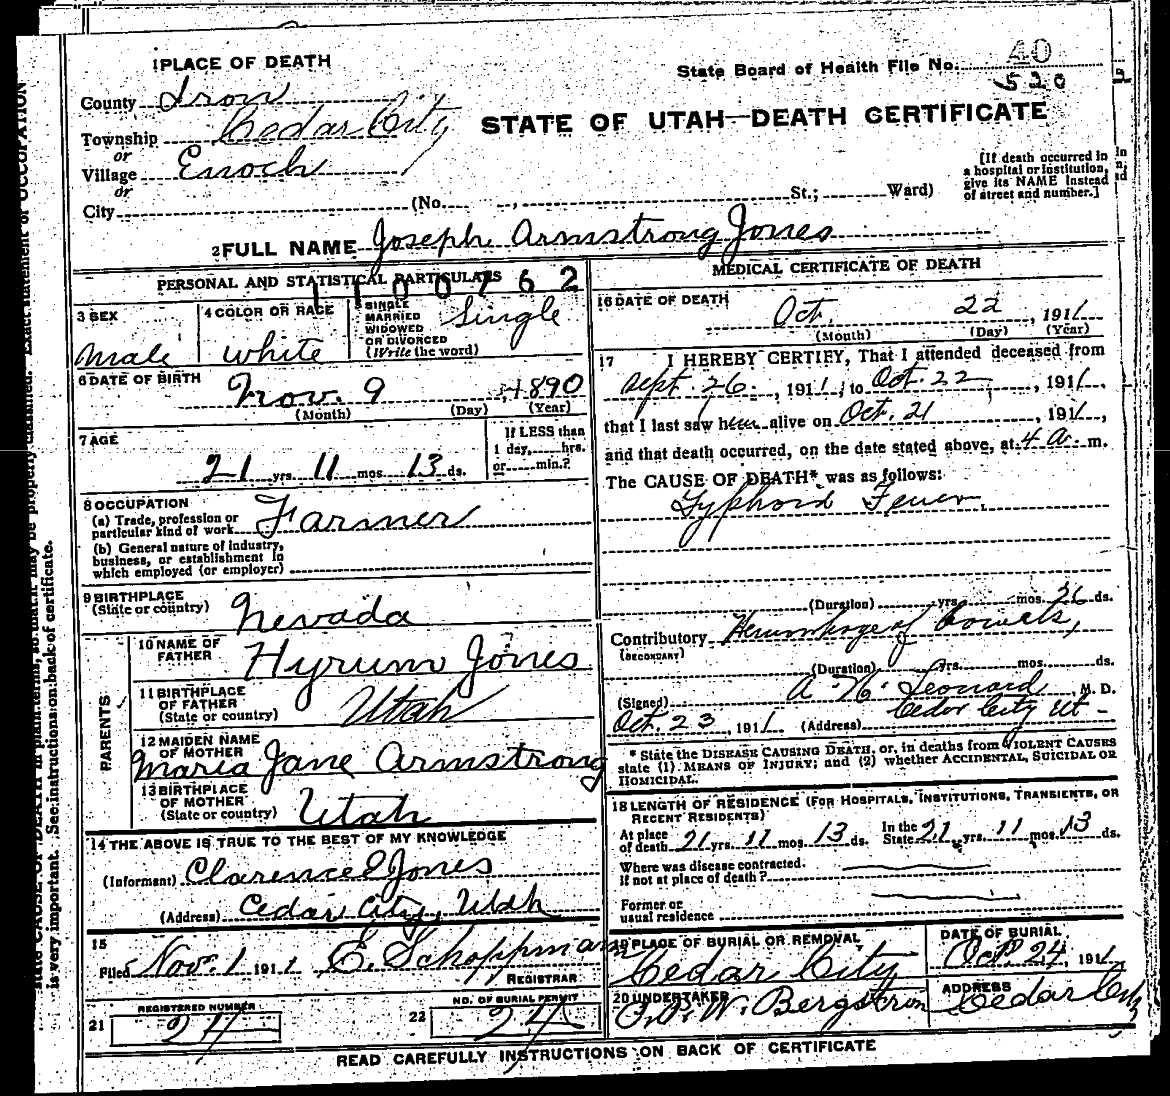 1 PLACE OF DEATH
State Board of Health File No. 40
520
County Iron
Township Cedar City
or
Village Enoch
or
City (No. , St.; Ward)
STATE OF UTAH—DEATH CERTIFICATE
[If death occurred in
a hospital or institution,
give its NAME instead
of street and number.]
2 FULL NAME Joseph Armstrong Jones
PERSONAL AND STATISTICAL PARTICULARS
1100762
3 SEX
male
4 COLOR OR RACE
white
5 SINGLE
MARRIED
WIDOWED
OR DIVORCED
(Write the word)
Single
6 DATE OF BIRTH
Nov. 9, 1890
(Month) (Day) (Year)
7 AGE
21 yrs. 11 mos. 13 ds.
If LESS than
1 day, hrs.
or min.?
8 OCCUPATION
(a) Trade, profession or
particular kind of work Farmer
(b) General nature of industry,
business, or establishment in
which employed (or employer)
9 BIRTHPLACE
(State or country) Nevada
PARENTS
10 NAME OF
FATHER Hyrum Jones
11 BIRTHPLACE
OF FATHER
(State or country) Utah
12 MAIDEN NAME
OF MOTHER
Maria Jane Armstrong
13 BIRTHPLACE
OF MOTHER
(State or country) Utah
14 THE ABOVE IS TRUE TO THE BEST OF MY KNOWLEDGE
(Informant) Clarence E Jones
(Address) Cedar City, Utah
15
Filed Nov. 1 1911 E. Schoppmann
REGISTRAR
21 REGISTERED NUMBER
24
22 NO. OF BURIAL PERMIT
24
MEDICAL CERTIFICATE OF DEATH
16 DATE OF DEATH
Oct. 22, 1911
(Month) (Day) (Year)
17 I HEREBY CERTIFY, That I attended deceased from
Sept. 26, 1911, to Oct. 22, 1911,
that I last saw him alive on Oct. 21, 1911,
and that death occurred, on the date stated above, at 4 a. m.
The CAUSE OF DEATH* was as follows:
Typhoid Fever.
(Duration) yrs. mos. 26 ds.
Contributory Hemorrhage of bowels,
(SECONDARY)
(Duration) yrs. mos. ds.
(Signed) A. N. Leonard, M. D.
Oct. 23, 1911 (Address) Cedar City Ut-
* State the DISEASE CAUSING DEATH, or, in deaths from VIOLENT CAUSES
state (1) MEANS OF INJURY; and (2) whether ACCIDENTAL, SUICIDAL OR
HOMICIDAL.
18 LENGTH OF RESIDENCE (FOR HOSPITALS, INSTITUTIONS, TRANSIENTS, OR
RECENT RESIDENTS)
At place
of death 21 yrs. 11 mos. 13 ds. In the
State 21 yrs. 11 mos. 13 ds.
Where was disease contracted.
if not at place of death?
Former or
usual residence
19 PLACE OF BURIAL OR REMOVAL
Cedar City
DATE OF BURIAL
Oct. 24, 1911
20 UNDERTAKER
W. Bergstrom
ADDRESS
Cedar City
READ CAREFULLY INSTRUCTIONS ON BACK OF CERTIFICATE
is very important. See instructions on back of certificate.